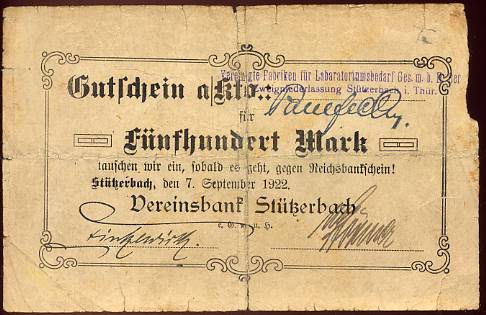 Vereinigte Fabriken für Laboratoriumsbedarf Ges. m. b. H.
Zweigniederlassung Stützerbach i. Thür.
Gutschein a/Kto.:
für
Fünfhundert Mark
tauschen wir ein, sobald es geht, gegen Reichsbankschein!
Stützerbach, den 7. September 1922.
Vereinsbank Stützerbach
e. G. m. u. H.